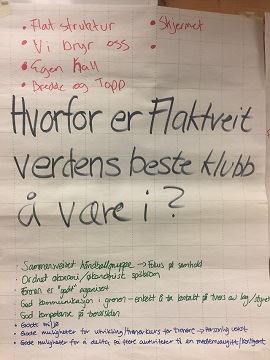 • Flat struktur
• Skjermet
• Vi bryr oss
•
• Egen hall
• Bredde og Topp
Hvorfor er Flaktveit
verdens beste klubb
å være i?
• Sammensveiset håndballgruppe → Fokus på samhold
• Ordnet økonomi /
• Formen er "godt" organisert
• God kommunikasjon i grenen - enkelt å ta kontakt på tvers av lag/styret
• God kompetanse på trenersiden
• Godt miljø
• Gode muligheter for utvikling/trenerkurs for trenere → Personlig vekst
• Gode muligheter for å delta på flere aktiviteter til en medlemsavgift/kontingent